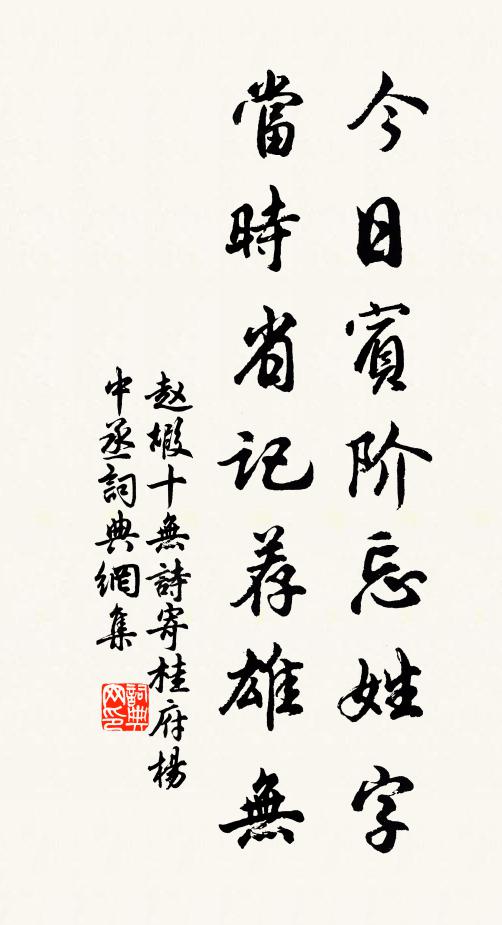 今日賓阶忘姓字
當時省記荐雄無
赵嘏十無詩寄桂府楊
中丞詞典網集
詞典网印